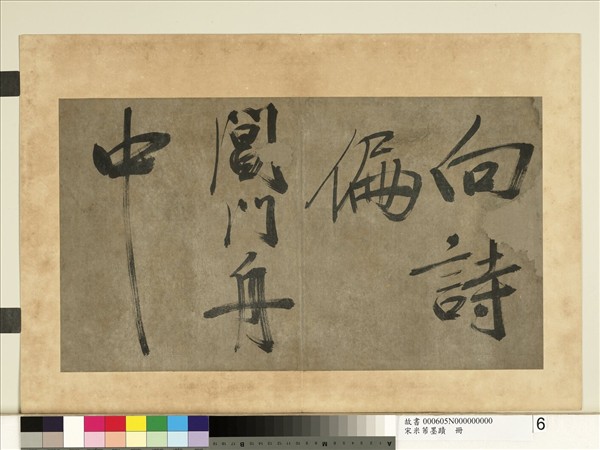 向詩
偏
閶門舟
中
故書 000605N000000000
宋米芾墨蹟　冊
6